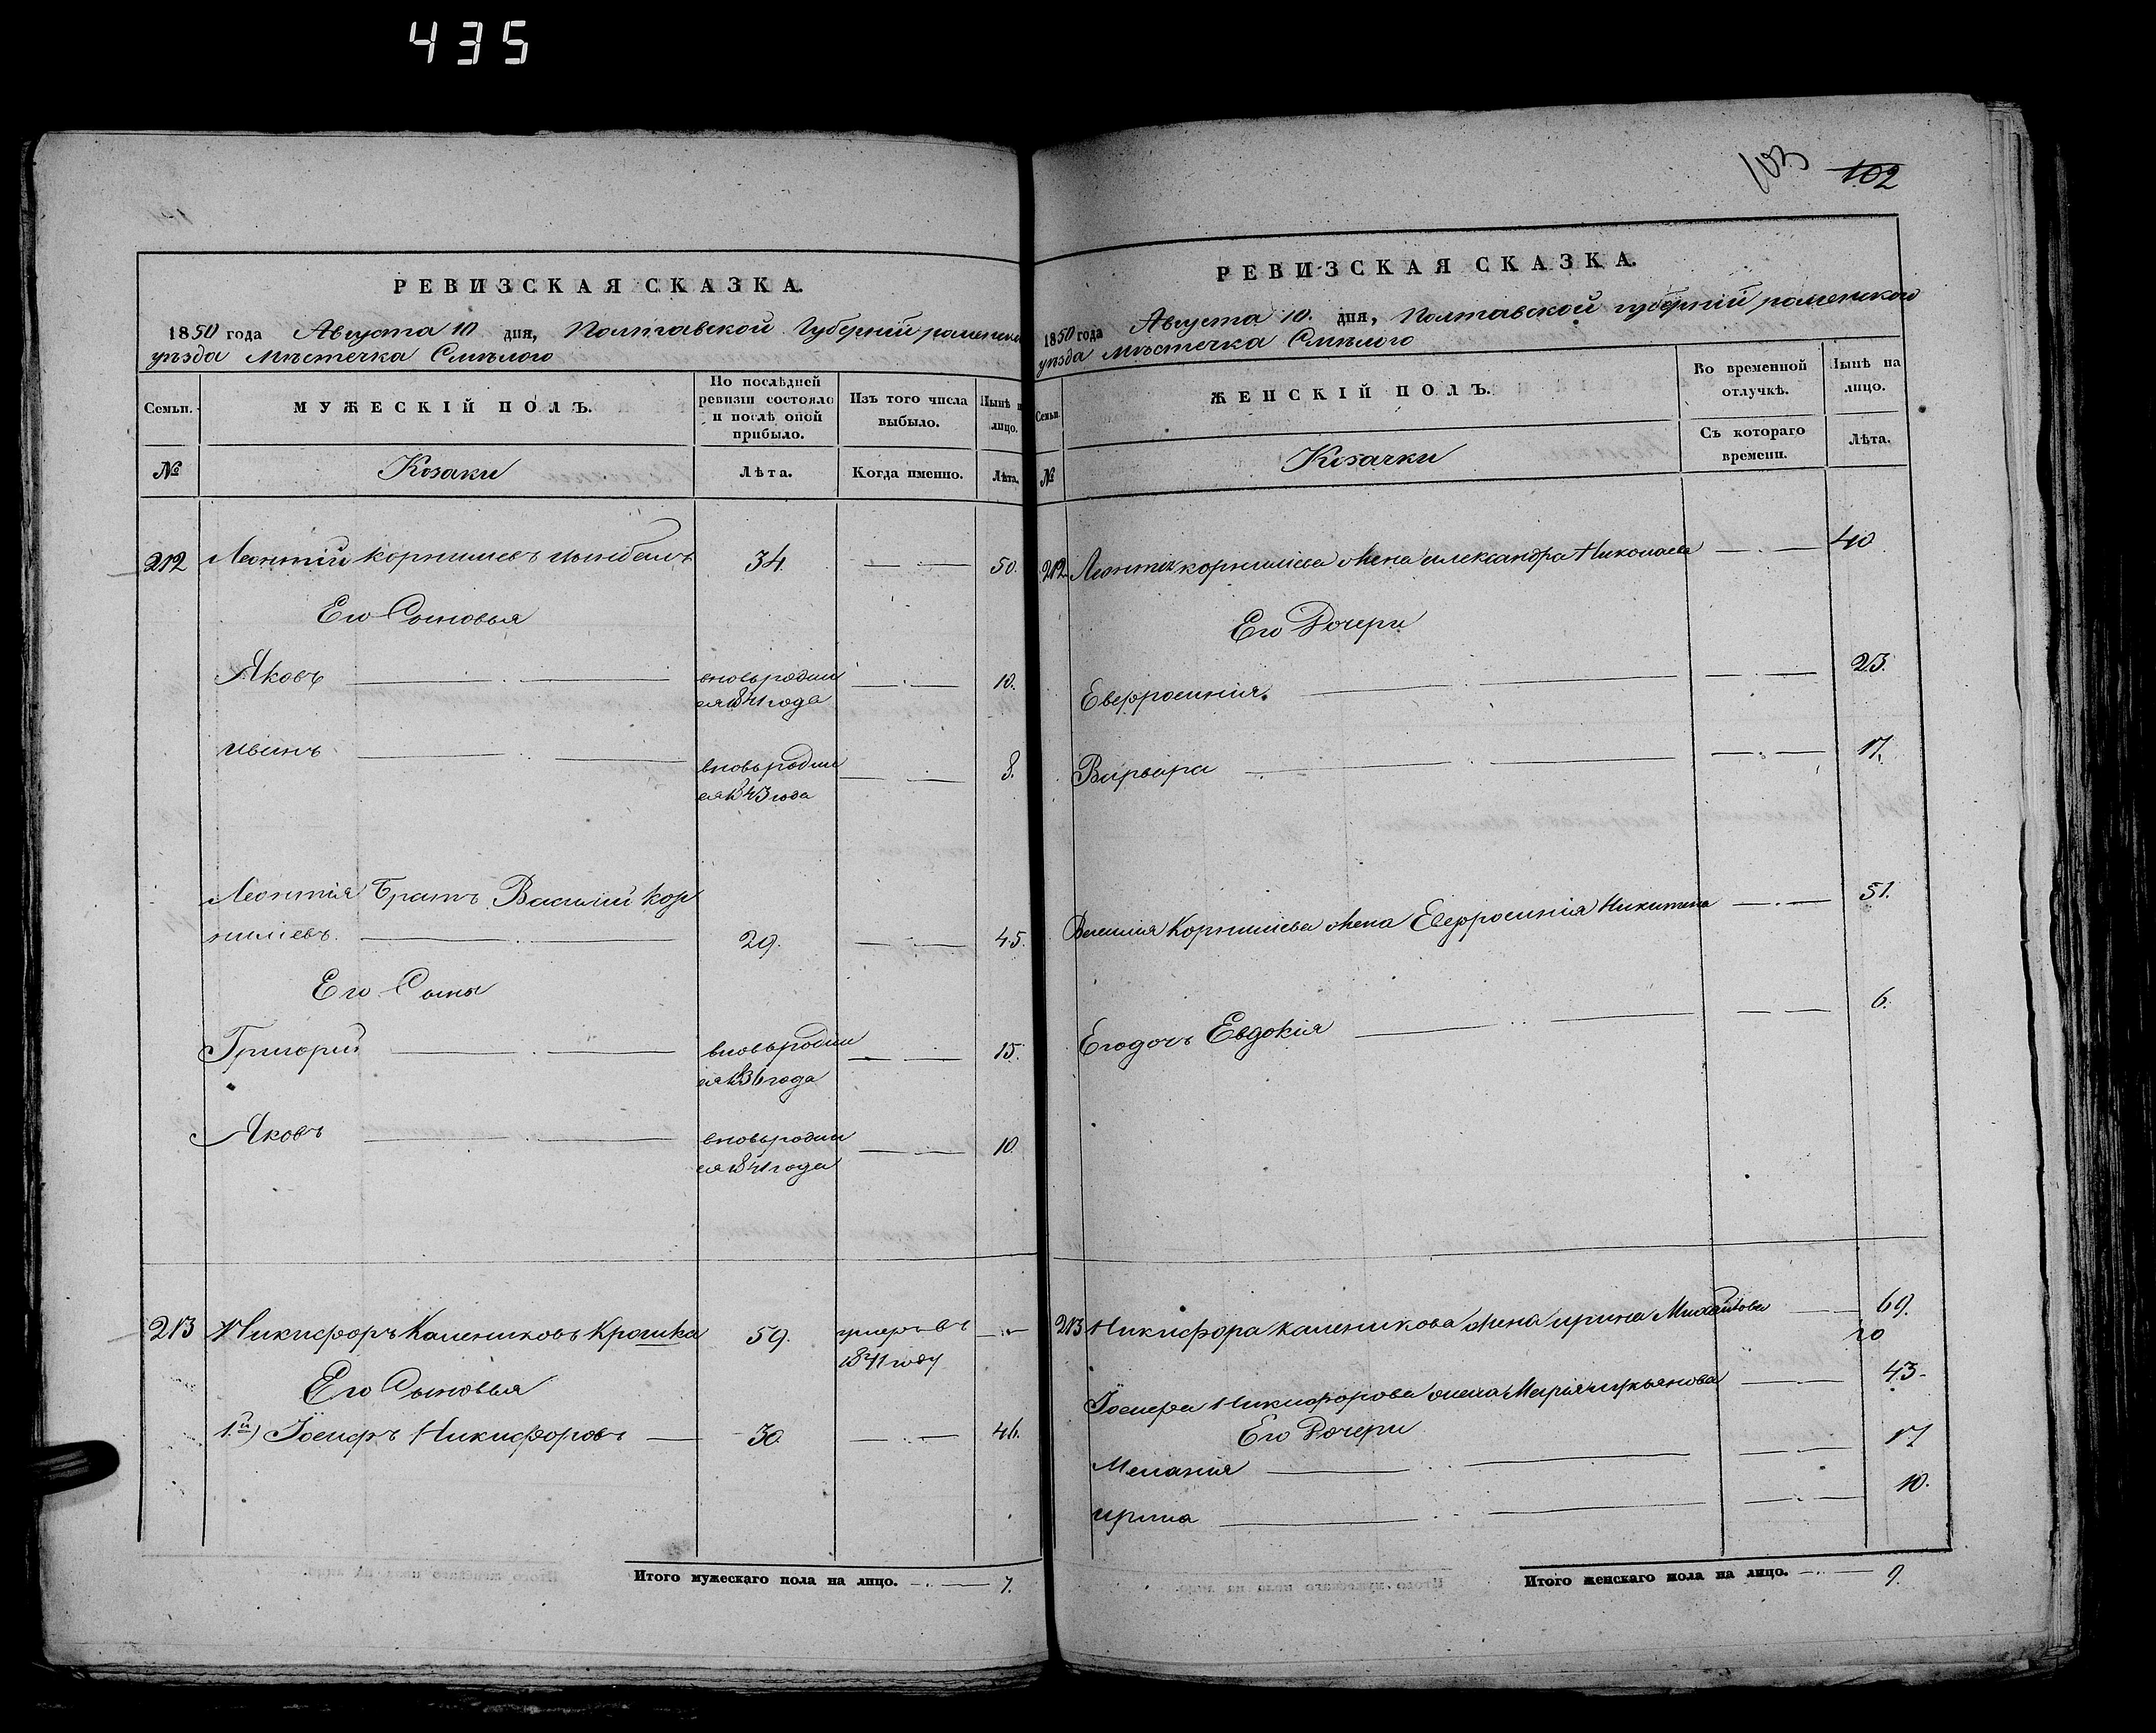 435
РЕВИЗСКАЯ СКАЗКА.
1850 года Августа 10 дня, Полтавской Губерній роменска
уѣзда Мѣстечка Смѣлого
Семьи.
МУЖЕСКІЙ ПОЛЪ.
По послѣдней ревизіи состояло и послѣ оной прибыло.
Изъ того числа выбыло.
Нынѣ н лицо.
№
Козаки
Лѣта.
Когда именно.
Лѣта.
212 Леонтій корнилиевъ цымбалъ 34. 50.
Его Сыновья
Яковъ вновьродил 10.
ся1841года
иванъ вновьродил 8.
ся1843года
Леонтія Братъ Василий Кор
нилиевъ. 29. 45.
Его Сыны
Григорій вновьродил 15.
ся1836года
Яковъ вновьродил 10
ся1841года
213 Никифоръ Калениковъ Крошка 59. умеръ въ
1841 году
Его Сыновья
1й) Іосифъ Никифоровъ 30. 46.
Итого мужескаго пола на лицо. 7.
103 102
РЕВИЗСКАЯ СКАЗКА.
1850 года Августа 10. дня, Полтавской губерній роменского
уѣзда Мѣстечка Смѣлого
Семьи.
ЖЕНСКІЙ ПОЛЪ.
Во временной отлучкѣ.
Нынѣ на лицо.
№
Козачки
Съ котораго времени.
Лѣта.
212 Леонтія корнилиева жена александра Николаева 40
Его Дочери
Евфросинія 23.
Варвара 17.
Василия Корнилиева жена Евфросинія Никитина 51.
Егодочь Евдокія 6.
213 Никифора каленикова жена ирина Михайлова 69.
го
Іосифа Никифорова жена Марія лукьянова 43.
Его Дочери
Меланія 17
ирина 10.
Итого женскаго пола на лицо. 9.